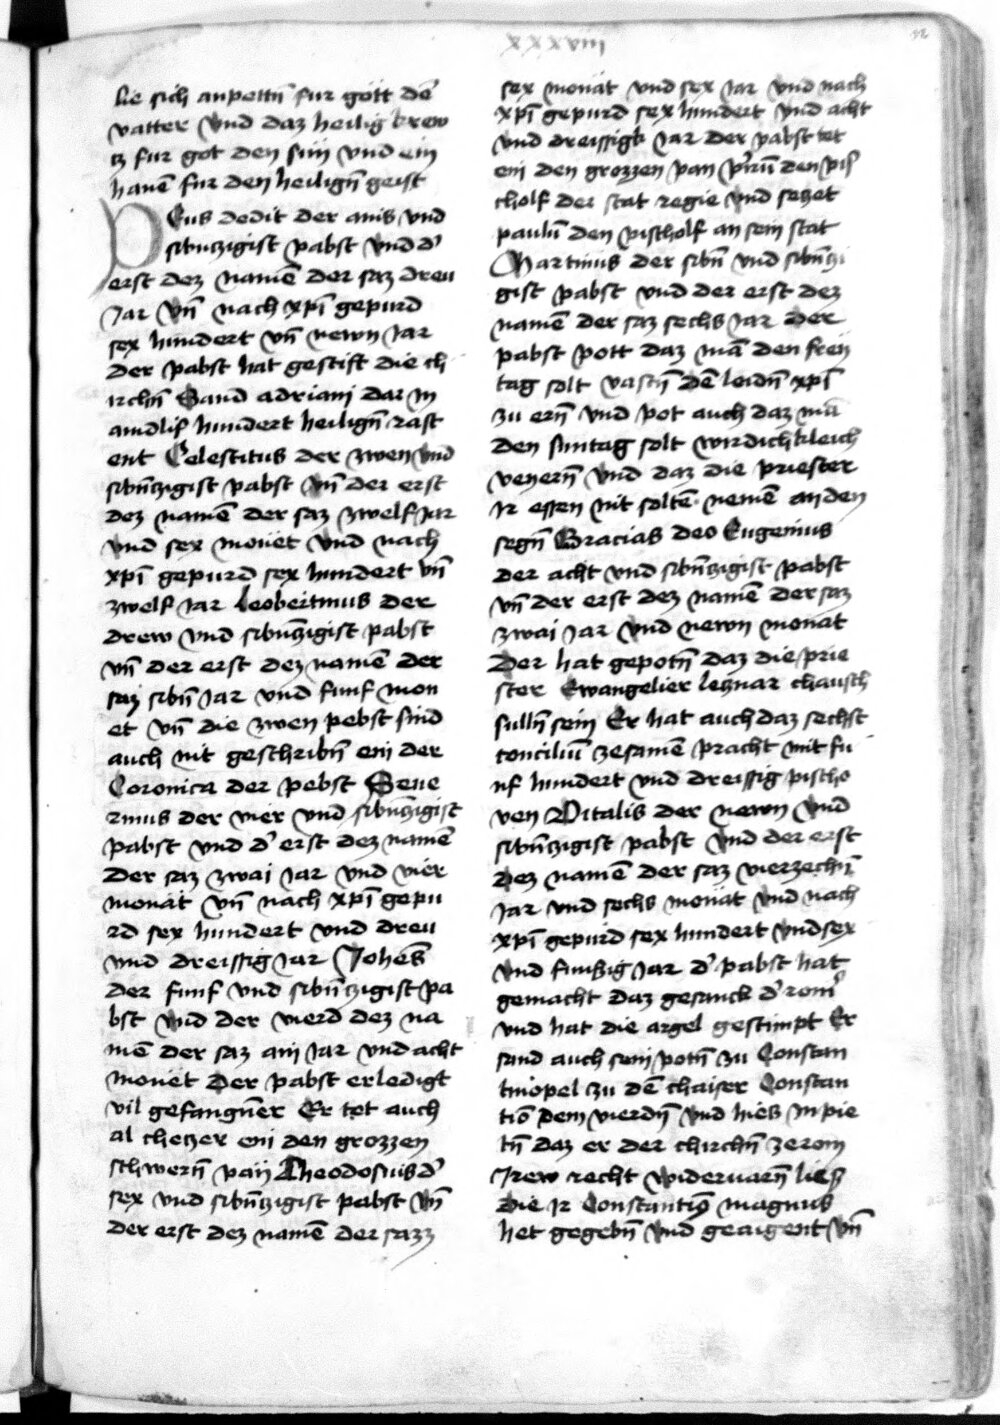 xxxviii
lie sich anpettn̄ fur gött de͞
vatter Vnd daz heilig krew
tz fur got den sun Vnd ein
hanē fur den heilign̄ geist
Deus dedit der ains Vnd
sibn̄tzigist pabst Vnd d'
erst dez namē der saz dreu
Jar Vn̄ nach xp̄i gepurd
sex hundert Vn̄ newn Jar
der pabst hat gestift die ch
irchn̄ Sand adriani dar in
aindlif hundert heilign̄ rast
ent Celestitus der zwen vnd
sibn̄tzigist pabst Vn̄ der erst
dez namē der saz zwelf Jar
vnd sex monet Vnd nach
xp̄i gepurd sex hundert Vn̄
zwelf Jar Leobertinus der
drew vnd sibn̄tzigist pabst
vn̄ der erst dez namē der
saz sibn̄ Jar vnd funf mon
et Vn̄ die zwen pebst sind
auch nit geschribn̄ eni der
Coronica der pebst Seue
rinus der vier vnd sibn̄tzigist
pabst vnd d' erst dez namē
der saz zwai Jar vnd vier
monat Vn̄ nach xp̄i gepu
rd sex hundert vnd dreu
vnd dreissig Jar Joh̄es
der funf vnd sibn̄tzigist pa
bst vnd der vierd dez na
mē der saz ain Jar vnd acht
monet der pabst erledigt
vil gefangn̄er Er tet auch
al chetzer eni den grozzen
schwern̄ pan Theodosius d'
sex vnd sibn̄tzigist pabst Vn̄
der erst dez namē der sazz
sex monat vnd sex Jar vnd nach
xp̄i gepurd sex hundert Vnd acht
vnd dreissigk Jar der pabst tet
eni den grozzen pan pirrū den pis
cholf der stat regie vnd setzet
paulū den pischolf an sein stat
Martinus der sibn̄ vnd sibn̄tzi
gist pabst vnd der erst dez
namē der saz sechs Jar der
pabst pott daz mā den frey
tag solt vastn̄ dē leidn̄ xp̄i
zu ern̄ vnd pot auch daz mā
den suntag solt wirdichkleich
veyern̄ vnd daz die priester
ir essen nit soltē nemē an den
segn̄ Gracias deo Eugenius
der acht vnd sibn̄tzigist pabst
vn̄ der erst dez namē der saz
zwai Jar vnd newn monat
Der hat gepotn̄ daz die prie
ster Ewangelier leznar chausch
sulln̄ sein Er hat auch daz sechst
conciliū zesamē pracht mit fu
nf hundert vnd dreissig pischo
ven Vitalis der newn Vnd
sibn̄tzigist pabst vnd der erst
dez namē der saz vierzechn̄
Jar vnd sechs monat vnd nach
xp̄i gepurd sex hundert vnd sex
vnd funftzig Jar d' pabst hat
gemacht daz gesanck d' rom'
vnd hat die argel gestimpt Er
sand auch sein potn̄ zu Constan
tinopel zu dē chaiser Constan
tio dem vierdn̄ vnd hiess in pie
tn̄ daz er der chirchn̄ ze rom
Jrew recht widervarn̄ lies
die ir Constantiꝰ magnus
het gegebn̄ vnd geaigent Vn̄